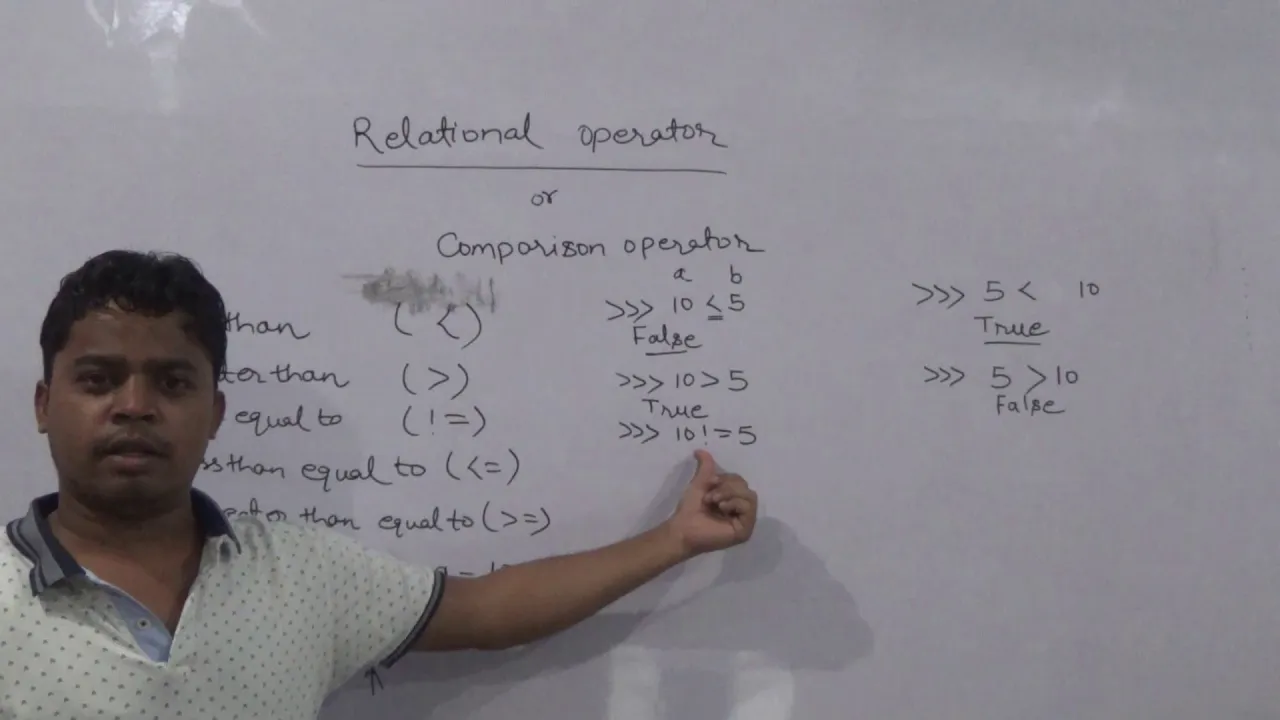 Relational operator
or
Comparison operator
a b
than ( < )
>>> 10 ≤ 5
False
>>> 5 < 10
True
ter than ( > )
>>> 10 > 5
True
>>> 5 > 10
False
equal to ( != )
>>> 10 != 5
ss than equal to ( <= )
eater than equal to ( >= )